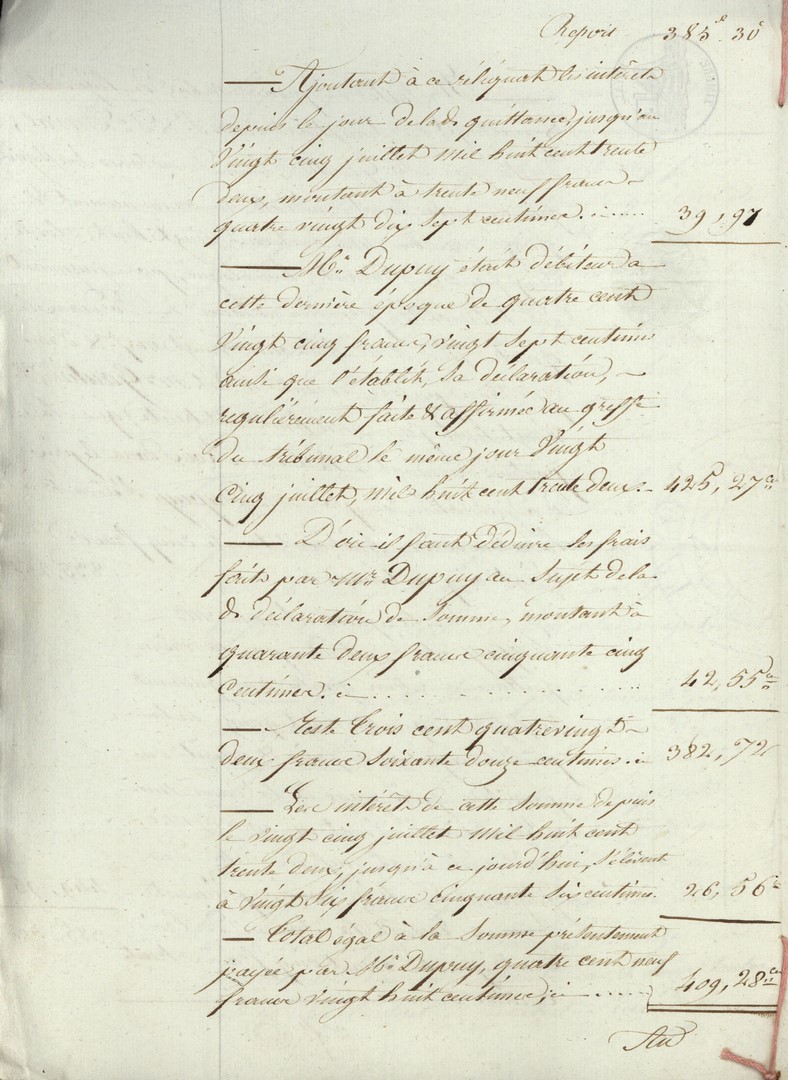 Report 385.f 30c
Ajoutant à ce réliquat les intérêts
depuis le jour de lade. quittance, jusqu'au
Vingt cinq juillet mil huit cent trente
deux, montant à trente neuf francs
quatre vingt dix sept centimes. ci ..... 39,,97
Mr. Dupuy était débiteur a
cette dernière époque de quatre cent
Vingt cinq francs, vingt sept centimes
ainsi que l'établit, sa déclaration,
regulièrement faite & affirmée au greffe
du tribunal le même jour Vingt
Cinq juillet, mil huit cent trente deux. 425, 27c
D'où il faut déduire les frais
faits par Mr. Dupuy au Sujet de la
de. déclaration de Somme, montant à
quarante deux francs cinquante cinq
Centimes. ci . . . . . . . . 42, 55c
Reste Trois cent quatrevingt
deux francs Soixante douze centimes. ci 382,72
Les intérêts de cette Somme depuis
le vingt cinq juillet mil huit cent
trente deux, jusqu'à ce jourd'hui, s'élèvent
à vingt Six francs Cinquante Six centimes 26, 56c
Total égal à la Somme présentement
payée par Mr. Dupuy, quatre cent neuf
francs vingt huit centimes, ci ..... 409, 28ces
Au